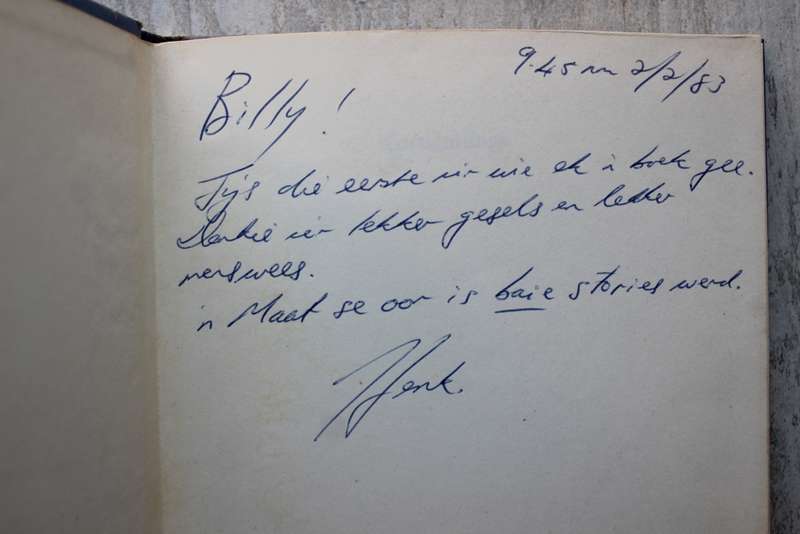 9.45 nm 2/2/83
Billy!
Jy's die eerste vir wie ek 'n boek gee.
Dankie vir lekker gesels en lekker
menswees.
'n Maat se oor is baie stories werd.
Henk.